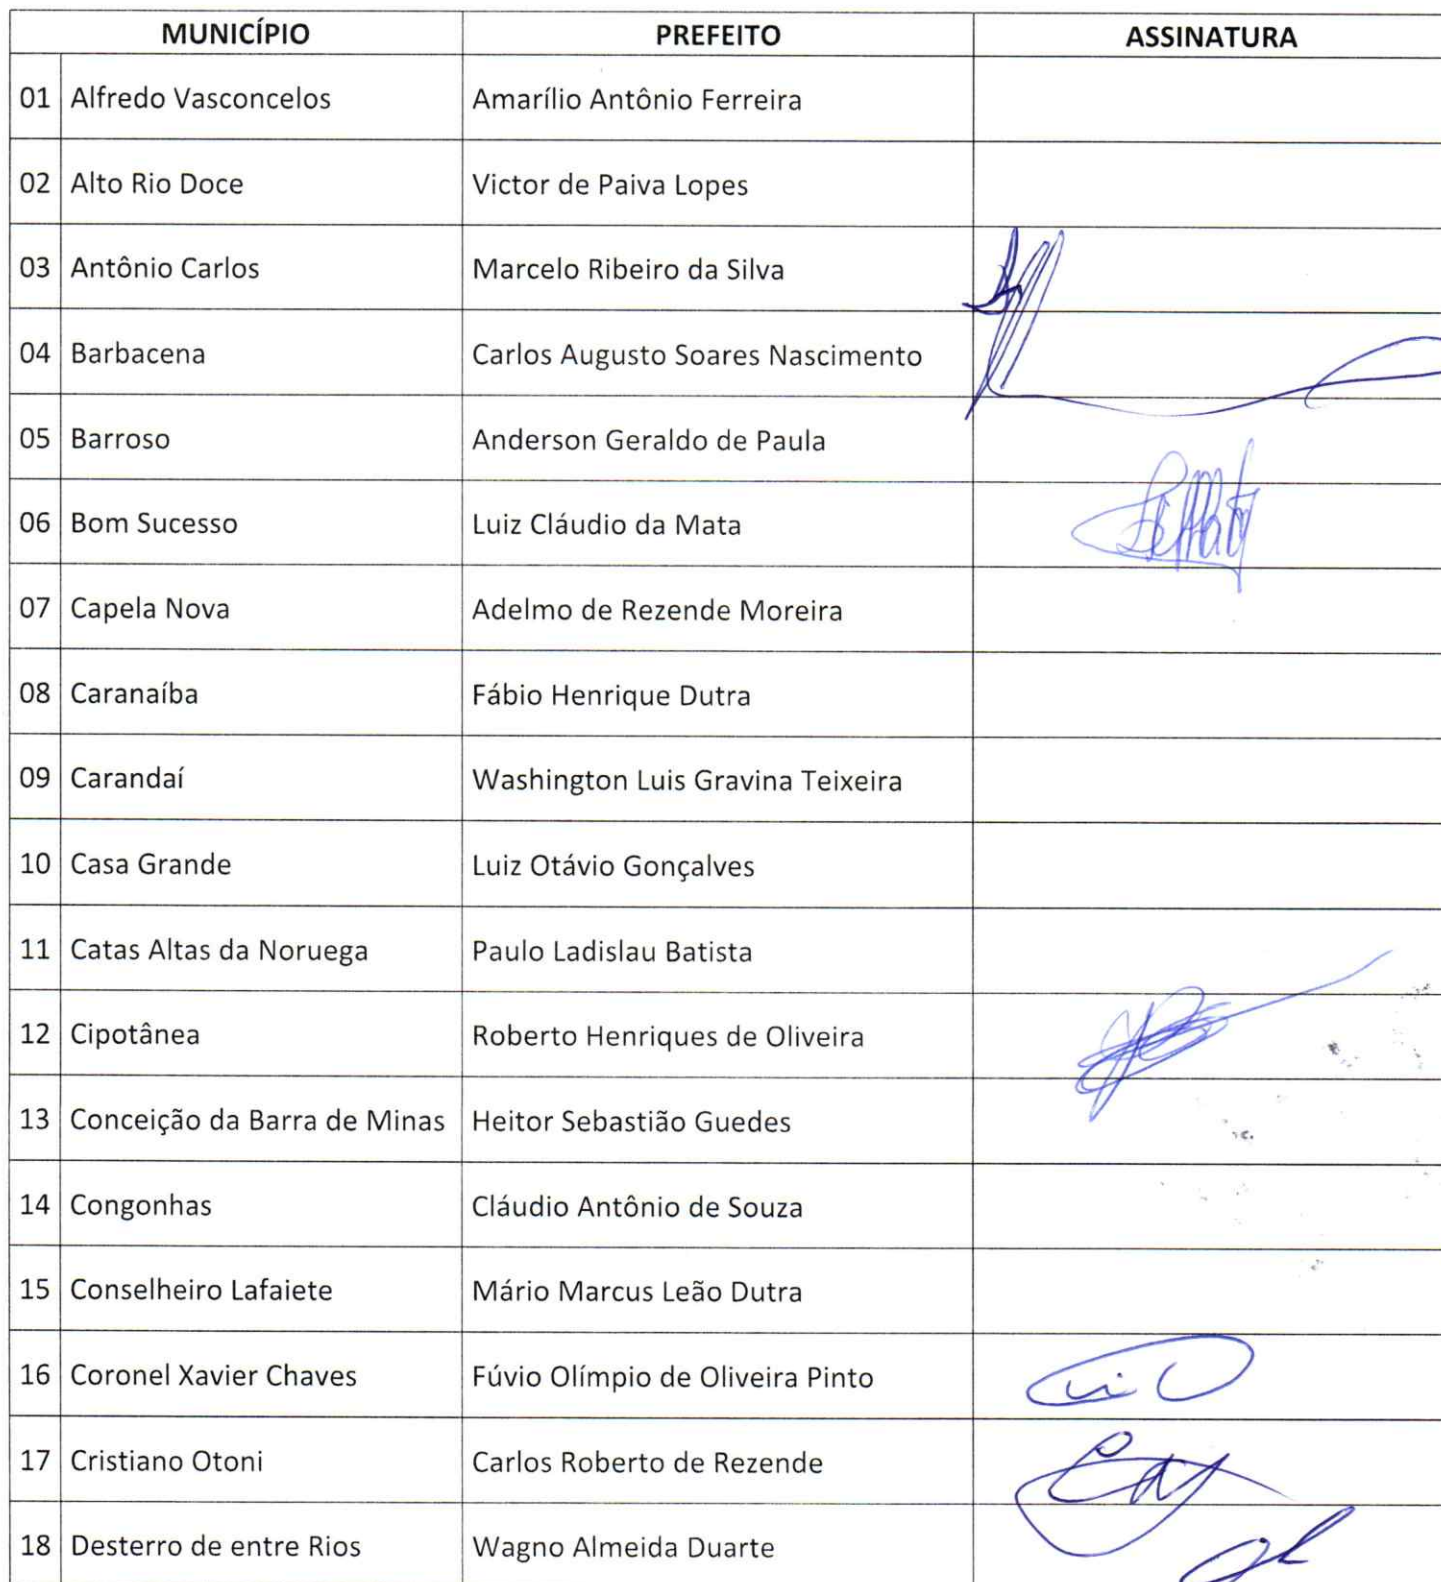 MUNICÍPIO PREFEITO ASSINATURA
01 Alfredo Vasconcelos Amarílio Antônio Ferreira
02 Alto Rio Doce Victor de Paiva Lopes
03 Antônio Carlos Marcelo Ribeiro da Silva
04 Barbacena Carlos Augusto Soares Nascimento
05 Barroso Anderson Geraldo de Paula
06 Bom Sucesso Luiz Cláudio da Mata
07 Capela Nova Adelmo de Rezende Moreira
08 Caranaíba Fábio Henrique Dutra
09 Carandaí Washington Luis Gravina Teixeira
10 Casa Grande Luiz Otávio Gonçalves
11 Catas Altas da Noruega Paulo Ladislau Batista
12 Cipotânea Roberto Henriques de Oliveira
13 Conceição da Barra de Minas Heitor Sebastião Guedes
14 Congonhas Cláudio Antônio de Souza
15 Conselheiro Lafaiete Mário Marcus Leão Dutra
16 Coronel Xavier Chaves Fúvio Olímpio de Oliveira Pinto
17 Cristiano Otoni Carlos Roberto de Rezende
18 Desterro de entre Rios Wagno Almeida Duarte